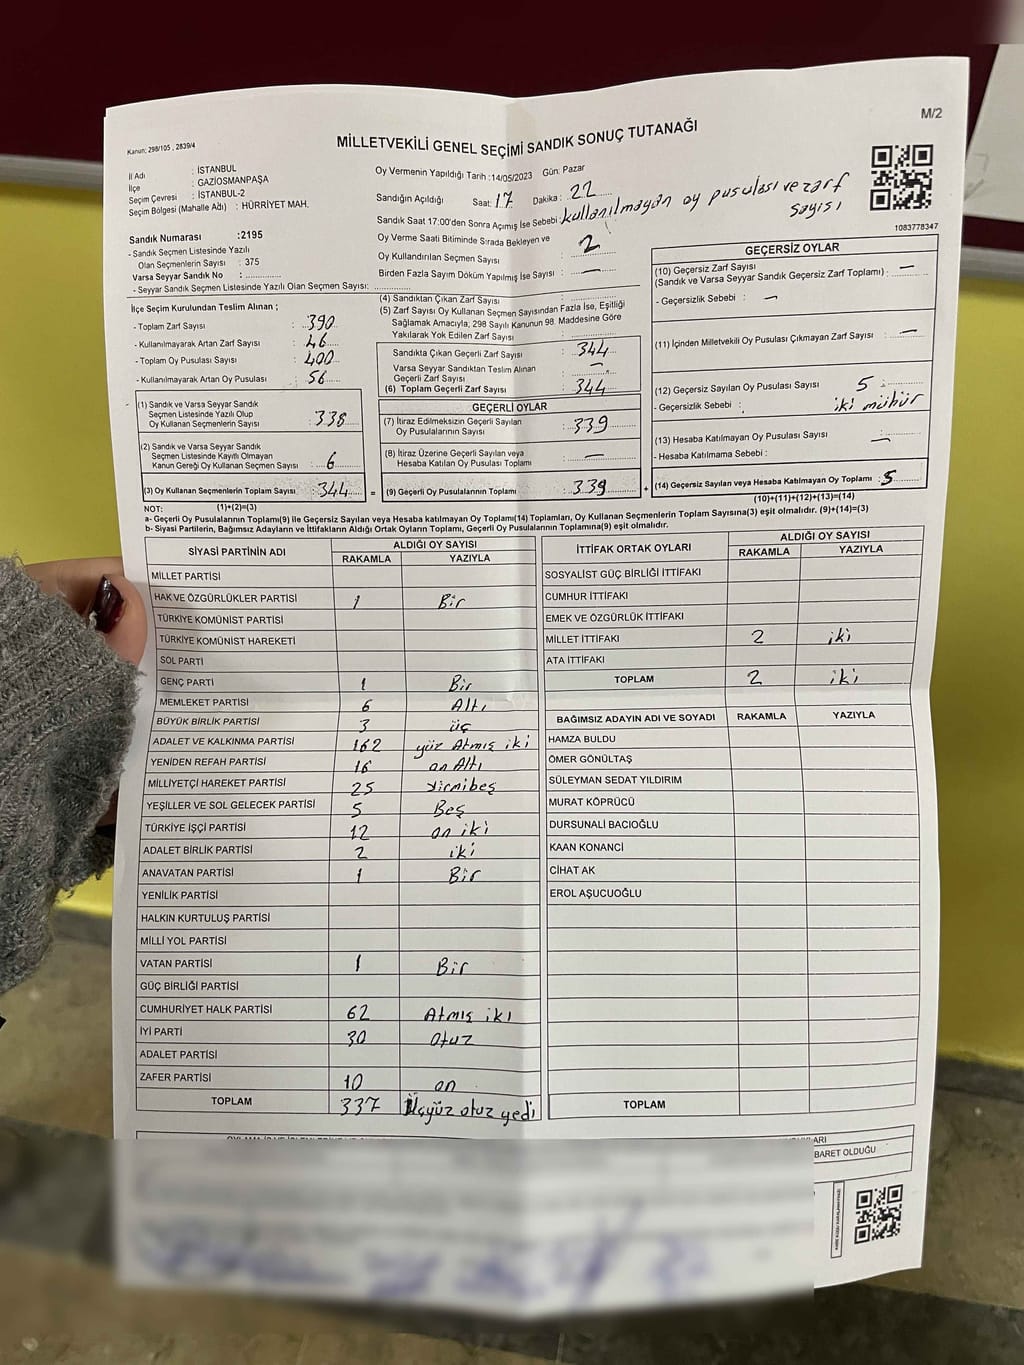 M/2
Kanun: 298/105 , 2839/4
MİLLETVEKİLİ GENEL SEÇİMİ SANDIK SONUÇ TUTANAĞI
İl Adı : İSTANBUL
İlçe : GAZİOSMANPAŞA
Seçim Çevresi : İSTANBUL-2
Seçim Bölgesi (Mahalle Adı) : HÜRRİYET MAH.
Oy Vermenin Yapıldığı Tarih :14/05/2023 Gün: Pazar
Sandığın Açıldığı Saat: 17 Dakika : 22
Sandık Saat 17:00'den Sonra Açımış İse Sebebi : kullanılmayan oy pusulası ve zarf
sayısı
Oy Verme Saati Bitiminde Sırada Bekleyen ve
Oy Kullandırılan Seçmen Sayısı : 2
Birden Fazla Sayım Döküm Yapılmış İse Sayısı : —
1083778347
Sandık Numarası :2195
- Sandık Seçmen Listesinde Yazılı
Olan Seçmenlerin Sayısı : 375
Varsa Seyyar Sandık No : ............
- Seyyar Sandık Seçmen Listesinde Yazılı Olan Seçmen Sayısı: ............
İlçe Seçim Kurulundan Teslim Alınan ;
- Toplam Zarf Sayısı : 390
- Kullanılmayarak Artan Zarf Sayısı : 46
- Toplam Oy Pusulası Sayısı : 400
- Kullanılmayarak Artan Oy Pusulası : 56
(1) Sandık ve Varsa Seyyar Sandık
Seçmen Listesinde Yazılı Olup
Oy Kullanan Seçmenlerin Sayısı : 338
(2) Sandık ve Varsa Seyyar Sandık
Seçmen Listesinde Kayıtlı Olmayan
Kanun Gereği Oy Kullanan Seçmen Sayısı : 6
(3) Oy Kullanan Seçmenlerin Toplam Sayısı : 344
(4) Sandıktan Çıkan Zarf Sayısı : ............
(5) Zarf Sayısı Oy Kullanan Seçmen Sayısından Fazla İse, Eşitliği
Sağlamak Amacıyla; 298 Sayılı Kanunun 98. Maddesine Göre
Yakılarak Yok Edilen Zarf Sayısı : ............
Sandıkta Çıkan Geçerli Zarf Sayısı : 344
Varsa Seyyar Sandıktan Teslim Alınan
Geçerli Zarf Sayısı : —
(6) Toplam Geçerli Zarf Sayısı : 344
GEÇERLİ OYLAR
(7) İtiraz Edilmeksizin Geçerli Sayılan
Oy Pusulalarının Sayısı : 339
(8) İtiraz Üzerine Geçerli Sayılan veya
Hesaba Katılan Oy Pusulası Toplamı : —
= (9) Geçerli Oy Pusulalarının Toplamı : 339 +
GEÇERSİZ OYLAR
(10) Geçersiz Zarf Sayısı
(Sandık ve Varsa Seyyar Sandık Geçersiz Zarf Toplamı) : —
- Geçersizlik Sebebi : —
(11) İçinden Milletvekili Oy Pusulası Çıkmayan Zarf Sayısı : —
(12) Geçersiz Sayılan Oy Pusulası Sayısı : 5
- Geçersizlik Sebebi : iki mühür
(13) Hesaba Katılmayan Oy Pusulası Sayısı : —
- Hesaba Katılmama Sebebi :
(14) Geçersiz Sayılan veya Hesaba Katılmayan Oy Toplamı : 5
(10)+(11)+(12)+(13)=(14)
NOT: (1)+(2)=(3)
a- Geçerli Oy Pusulalarının Toplamı(9) ile Geçersiz Sayılan veya Hesaba katılmayan Oy Toplamı(14) Toplamları, Oy Kullanan Seçmenlerin Toplam Sayısına(3) eşit olmalıdır. (9)+(14)=(3)
b- Siyasi Partilerin, Bağımsız Adayların ve İttifakların Aldığı Ortak Oyların Toplamı, Geçerli Oy Pusulalarının Toplamına(9) eşit olmalıdır.
SİYASİ PARTİNİN ADI ALDIĞI OY SAYISI
RAKAMLA YAZIYLA
MİLLET PARTİSİ
HAK VE ÖZGÜRLÜKLER PARTİSİ 1 Bir
TÜRKİYE KOMÜNİST PARTİSİ
TÜRKİYE KOMÜNİST HAREKETİ
SOL PARTİ
GENÇ PARTİ 1 Bir
MEMLEKET PARTİSİ 6 Altı
BÜYÜK BİRLİK PARTİSİ 3 üç
ADALET VE KALKINMA PARTİSİ 162 yüz Atmış iki
YENİDEN REFAH PARTİSİ 16 on Altı
MİLLİYETÇİ HAREKET PARTİSİ 25 Yirmibeş
YEŞİLLER VE SOL GELECEK PARTİSİ 5 Beş
TÜRKİYE İŞÇİ PARTİSİ 12 on iki
ADALET BİRLİK PARTİSİ 2 iki
ANAVATAN PARTİSİ 1 Bir
YENİLİK PARTİSİ
HALKIN KURTULUŞ PARTİSİ
MİLLİ YOL PARTİSİ
VATAN PARTİSİ 1 Bir
GÜÇ BİRLİĞİ PARTİSİ
CUMHURİYET HALK PARTİSİ 62 Atmış iki
İYİ PARTİ 30 otuz
ADALET PARTİSİ
ZAFER PARTİSİ 10 on
TOPLAM 337 Üçyüz otuz yedi
İTTİFAK ORTAK OYLARI ALDIĞI OY SAYISI
RAKAMLA YAZIYLA
SOSYALİST GÜÇ BİRLİĞİ İTTİFAKI
CUMHUR İTTİFAKI
EMEK VE ÖZGÜRLÜK İTTİFAKI
MİLLET İTTİFAKI 2 iki
ATA İTTİFAKI
TOPLAM 2 iki
BAĞIMSIZ ADAYIN ADI VE SOYADI RAKAMLA YAZIYLA
HAMZA BULDU
ÖMER GÖNÜLTAŞ
SÜLEYMAN SEDAT YILDIRIM
MURAT KÖPRÜCÜ
DURSUNALİ BACIOĞLU
KAAN KONANCİ
CİHAT AK
EROL AŞUCUOĞLU
TOPLAM
ARI
BARET OLDUĞU